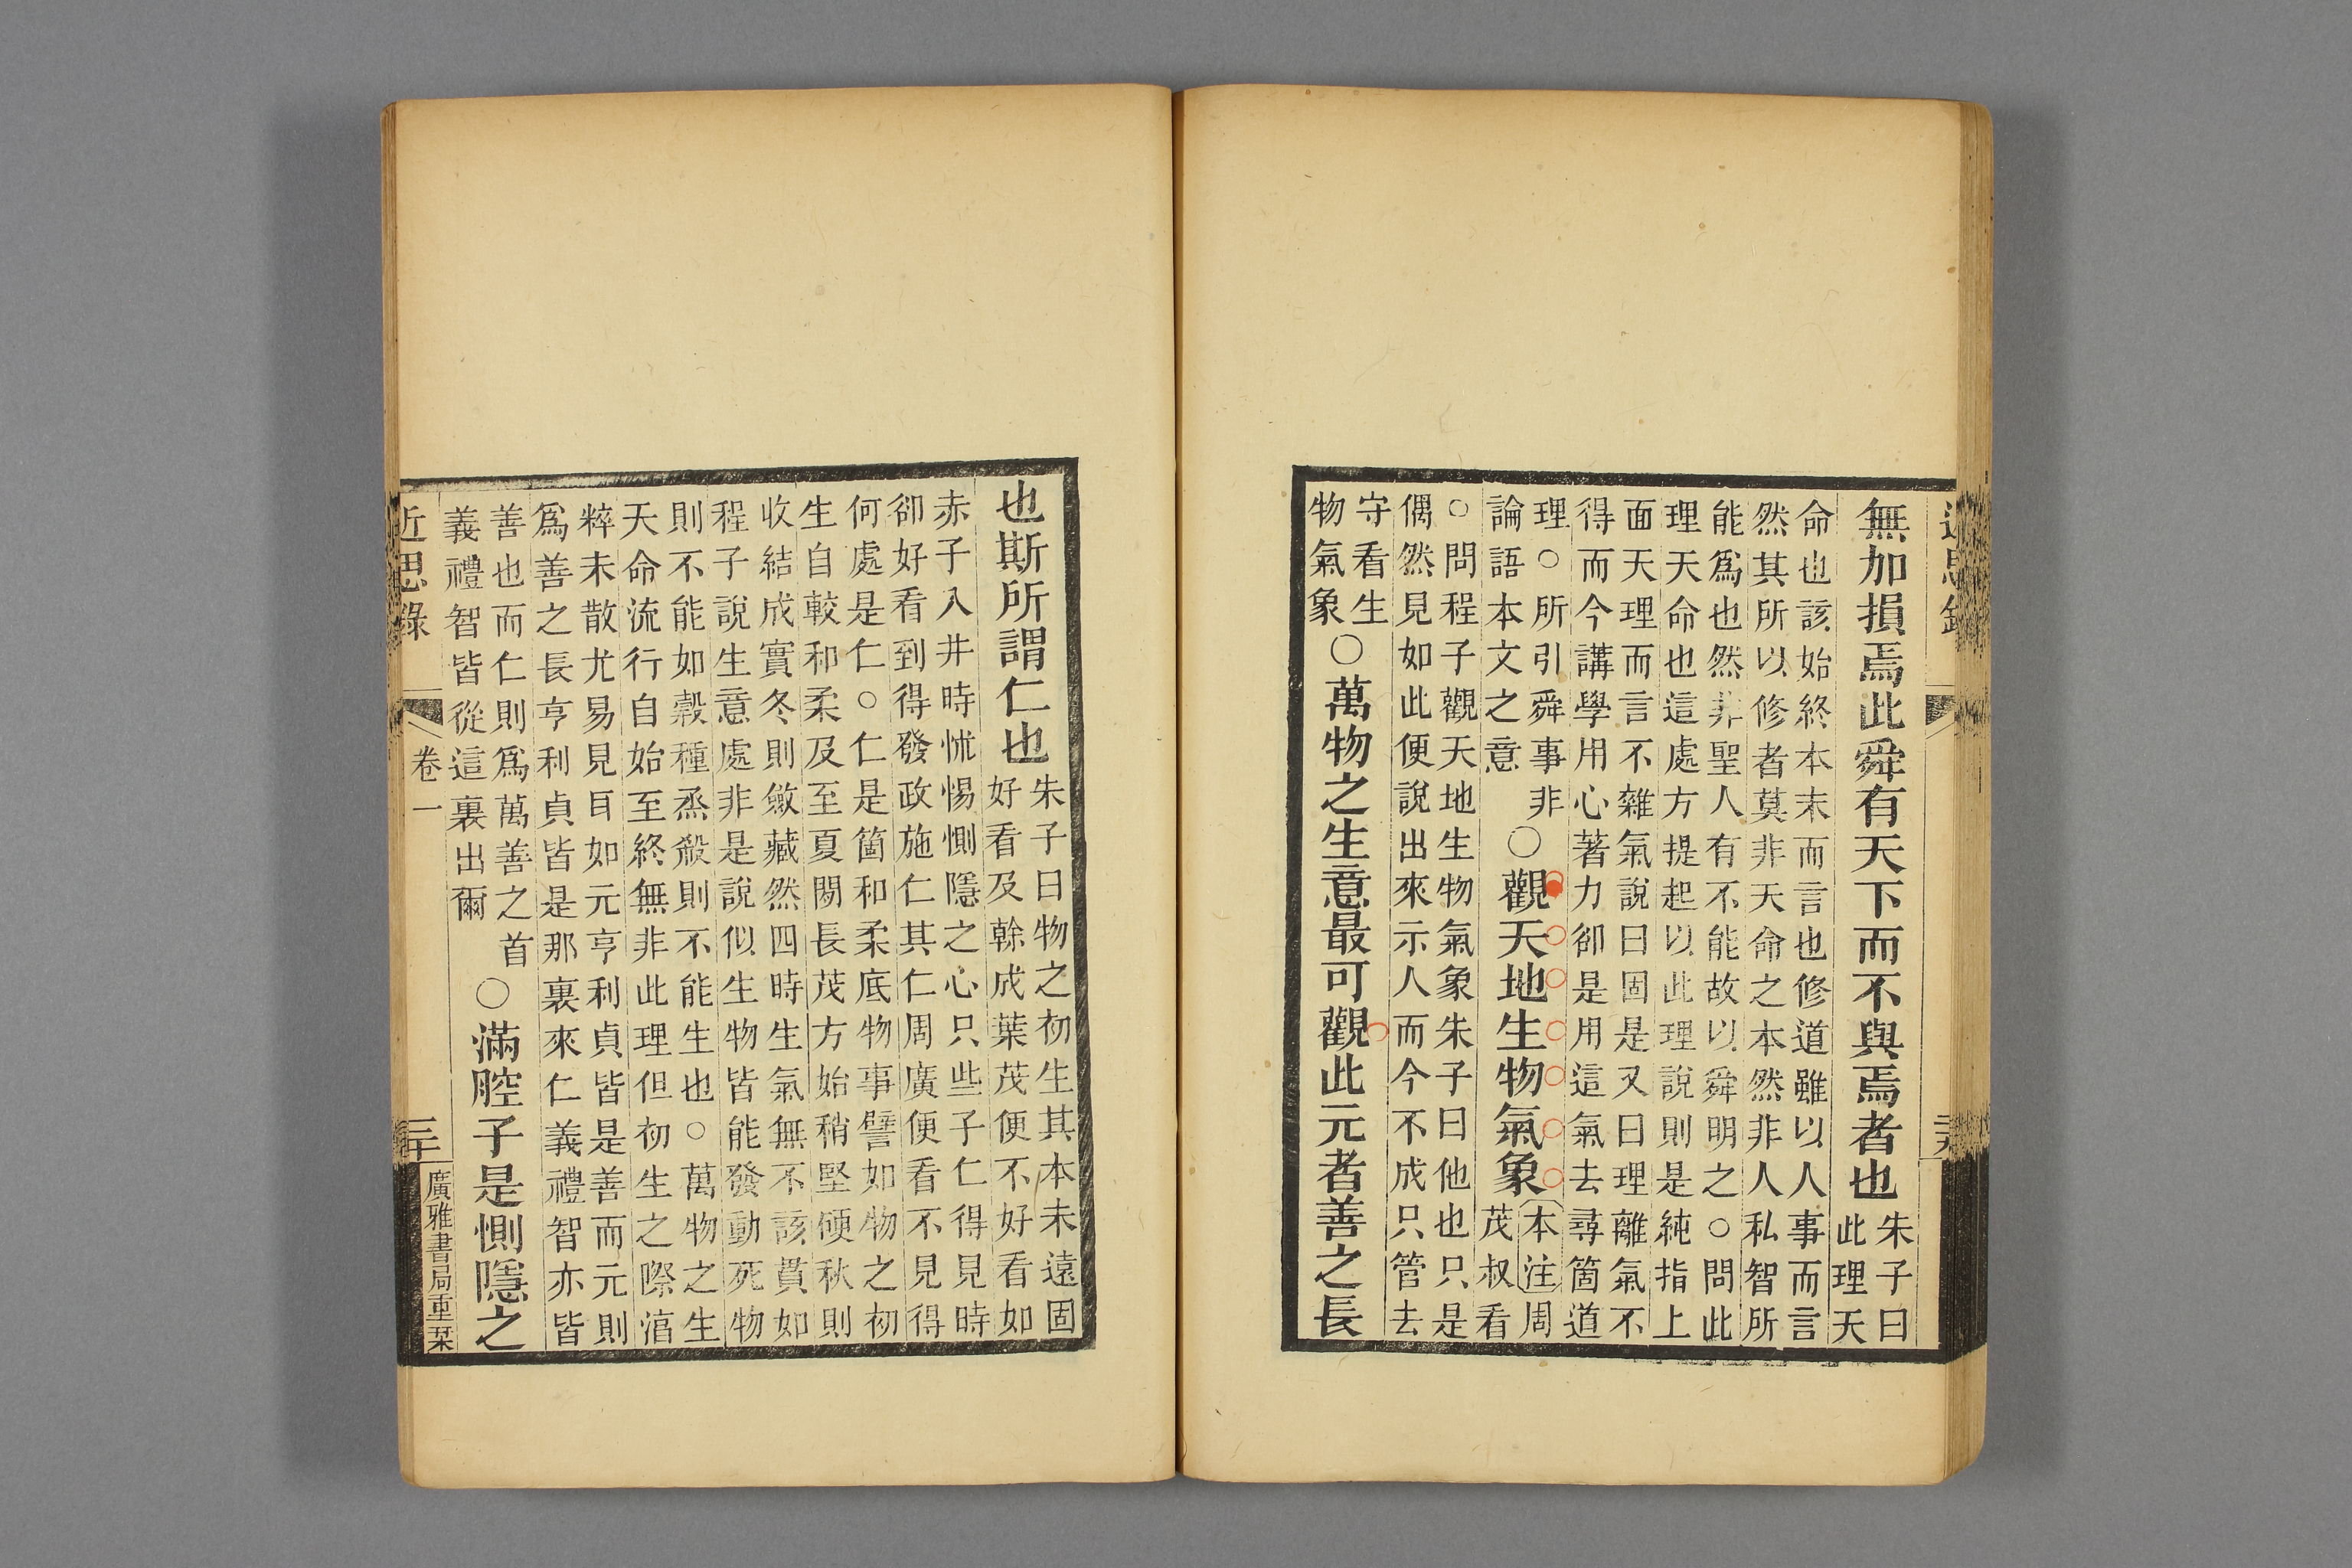 無加損焉此舜有天下而不與焉者也
朱子曰
此理天
命也該始終本末而言也修道雖以人事而言
然其所以修者莫非天命之本然非人私智所
能爲也然非聖人有不能故以舜明之○問此
理天命也這處方提起以此理說則是純指上
面天理而言不雜氣說曰固是又曰理離氣不
得而今講學用心著力卻是用這氣去尋箇道
理○所引舜事非
論語本文之意
○觀天地生物氣象
本注周
茂叔看
○問程子觀天地生物氣象朱子曰他也只是
偶然見如此便說出來示人而今不成只管去
守看生
物氣象
○萬物之生意最可觀此元者善之長
也斯所謂仁也
朱子曰物之初生其本未遠固
好看及榦成葉茂便不好看如
赤子入井時怵惕惻隱之心只些子仁得見時
卻好看到得發政施仁其仁周廣便看不見得
何處是仁○仁是箇和柔底物事譬如物之初
生自較和柔及至夏閒長茂方始稍堅硬秋則
收結成實冬則斂藏然四時生氣無不該貫如
程子說生意處非是說似生物皆能發動死物
則不能如穀種烝殺則不能生也○萬物之生
天命流行自始至終無非此理但初生之際淳
粹未散尤易見耳如元亨利貞皆是善而元則
爲善之長亨利貞皆是那裏來仁義禮智亦皆
善也而仁則爲萬善之首
義禮智皆從這裏出爾
○滿腔子是惻隱之
近思錄
卷一
三十
廣雅書局重栞